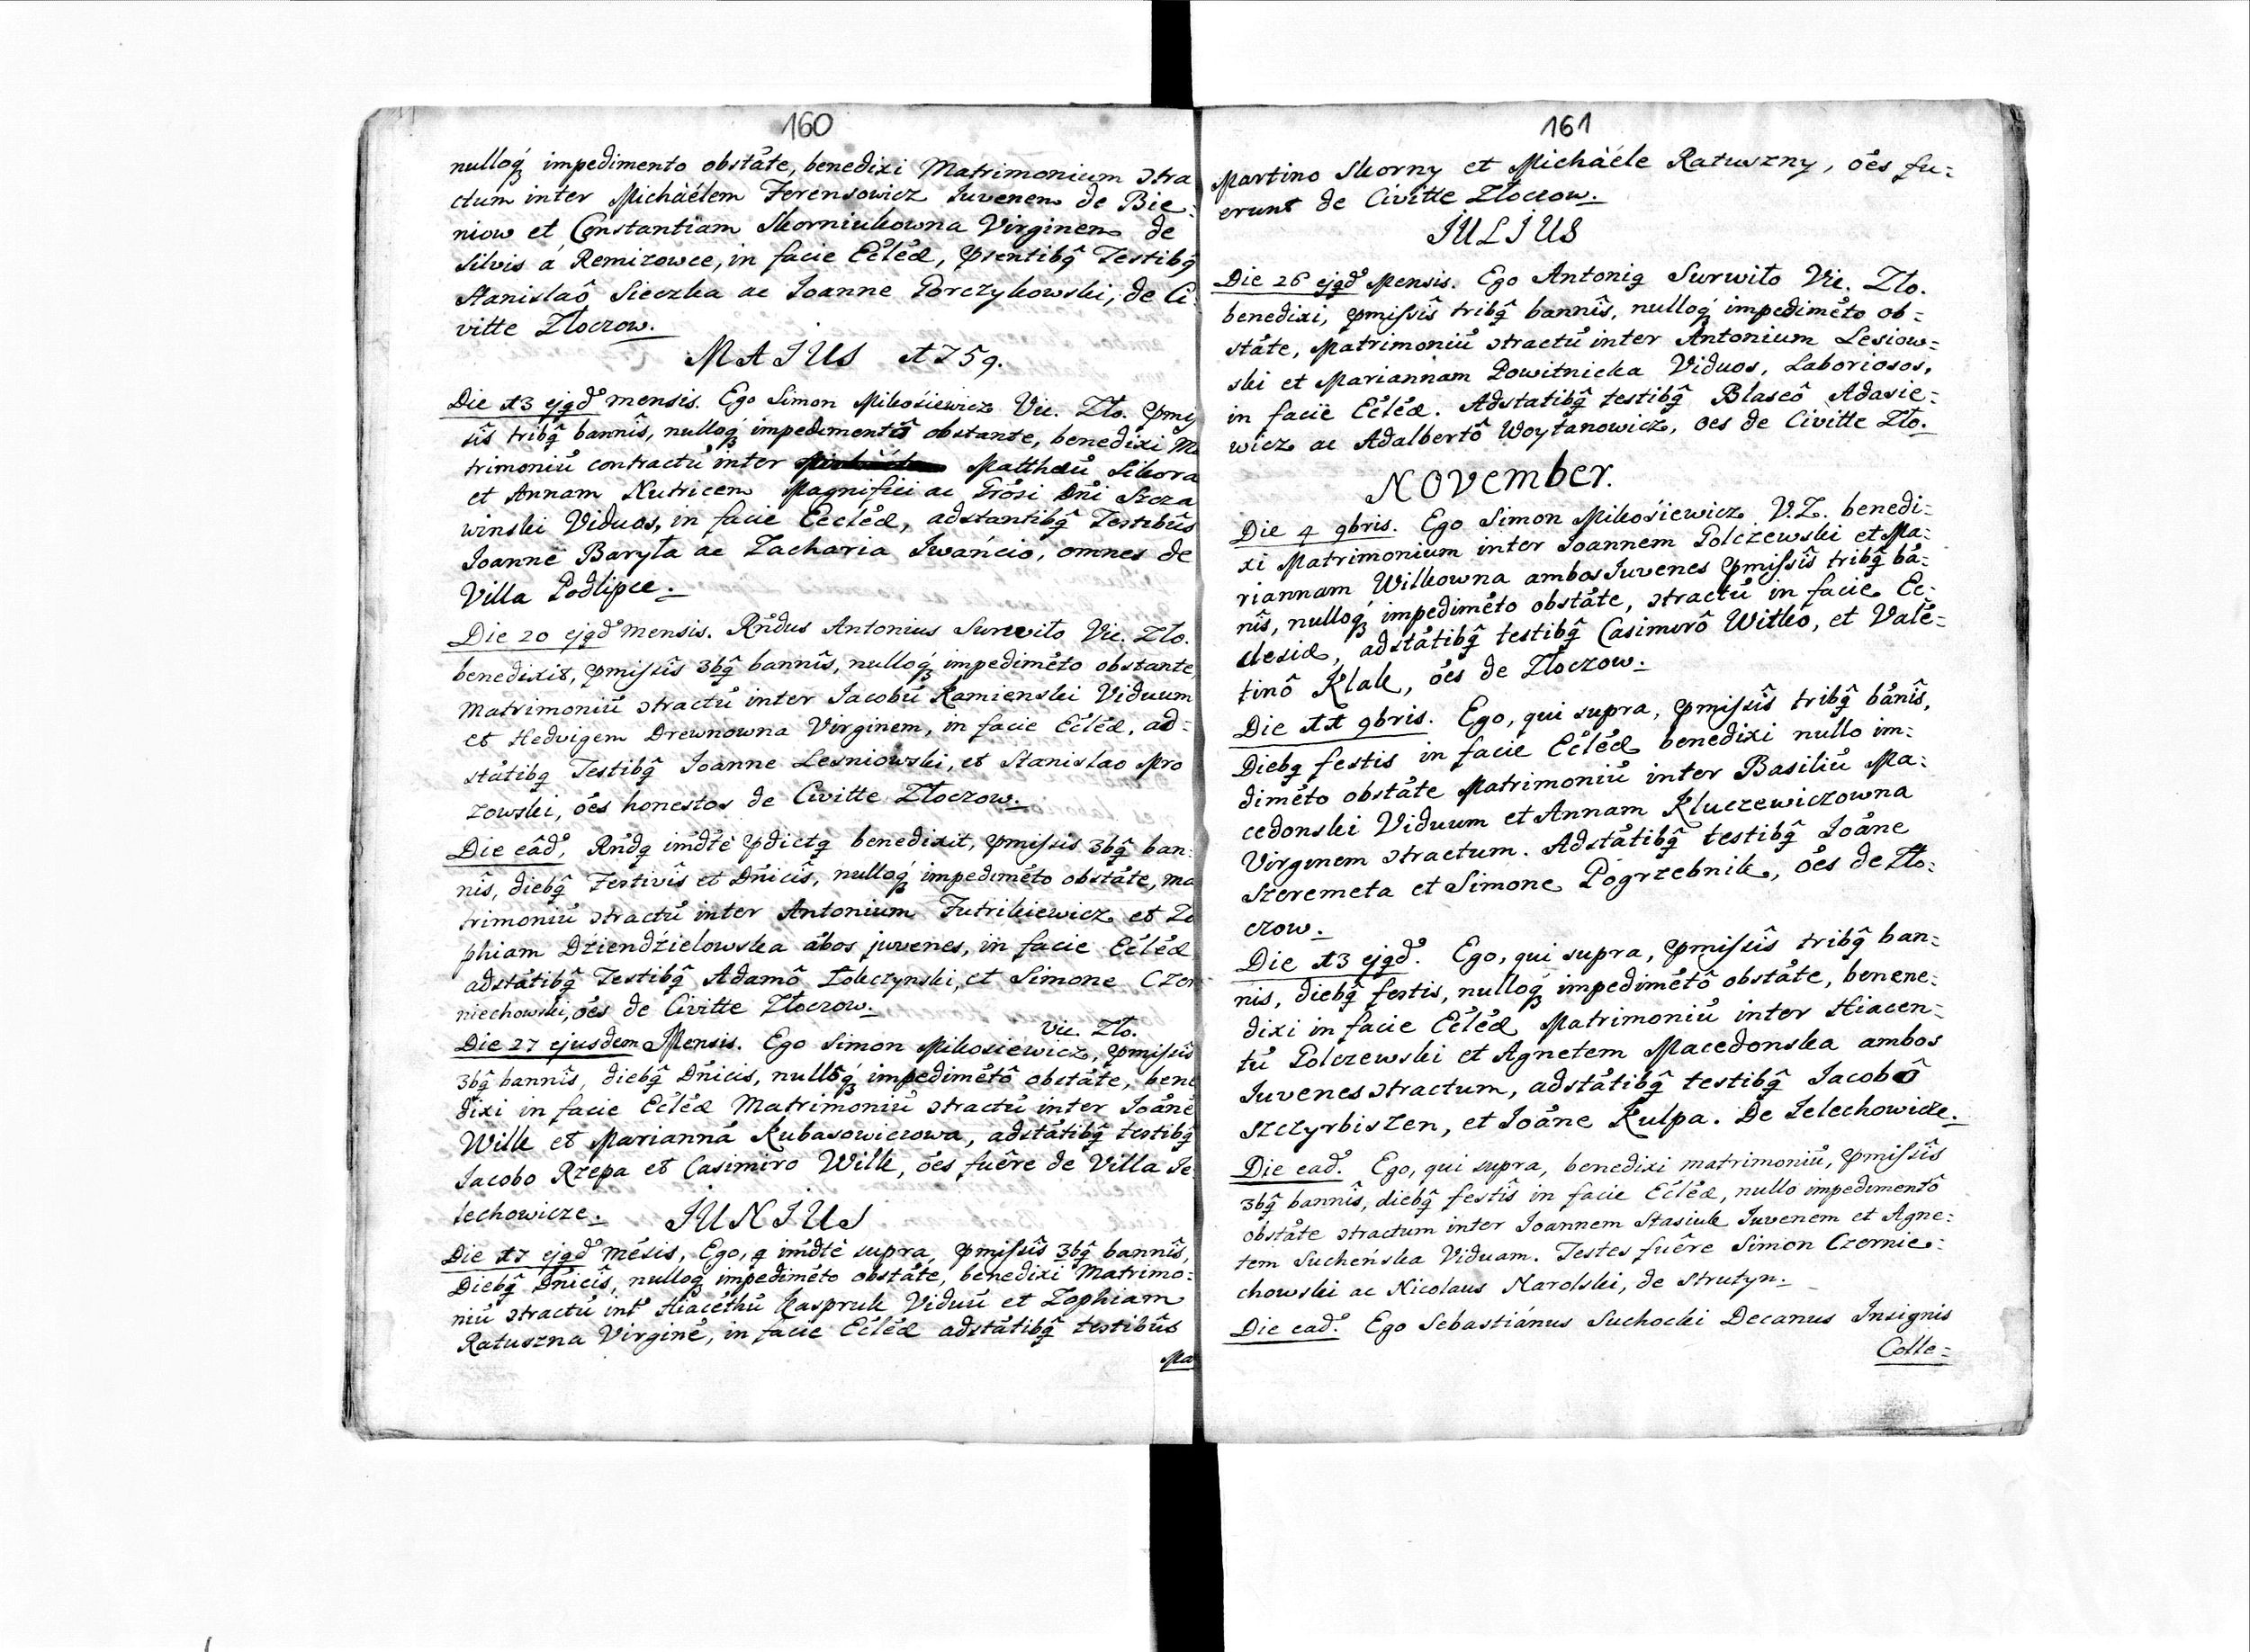 160
nulloq́ impedimento obstāte, benedixi Matrimonium ɔtra
ctum inter Michàélem Ferensowicz Iuvenem de Bie:
niow et Constantiam Skorniukowna Virginem de
Silvis á Remizowce, in facie Eclæ, pręntibq̂ Testibq̂
Stanislaô Sieczka ac Joanne Gorczykowski, de Ci
vitte Złoczow.
MAJUS 1759.
Die 13 ejqd mensis. Ego Simon Mikosiewicz Vic. Zło. pmis
sîs tribq̂ bannîs, nulloq́ impedimentô obstante, benedixi Ma
trimoniū contractū inter Matthæū Sikora
et Annam Nutricem Magnifici ac Grosi Dni Szcza
winski Viduos, in facie Eecleæ, adstantibq̂ Testibûs
Joanne Baryła ac Zacharia Iwańcio, omnes de
Villa Podlipce.
Die 20 ejqd mensis. Rndus Antonius Surwiło Vic. Zło.
benedixit, pmissîs 3bq̂ bannîs, nulloq́ impedimēto obstante,
Matrimoniū ɔtractū inter Jacobū Kamienski Viduum
et Hedvigem Drewnowna Virginem, in facie Eclæ, ad=
stātibq Testibq̂ Joanne Lesniowski, et Stanislao Mro
zowski, oēs honestos de Civitte Złoczow.
Die eâd. Rndq imdtè pdictq benedixit, pmissis 3bq̂ ban:
nîs, diebq̂ Festivîs et Dnicîs, nulloq́ impedimēto obstāte, ma
trimoniū ɔtractū inter Antonium Futrikiewicz et Zo
phiam Dziendzielowska ābos juvenes, in facie Eclæ
adstātibq̂ Testibq̂ Adamô Łobczynski, et Simone Czer
niechowski, oēs de Civitte Złoczow.
vic. Zło.
Die 27 ejusdem Mensis. Ego Simon Mikosiewicz, pmissîs
3bq̂ bannîs, diebq̂ Dnicis, nulloq́ impedimētô obstāte, bene
dixi in facie Eclæ Matrimoniū ɔtractū inter Joāne
Wilk et Mariannā Kubasowiczowa, adstātibq̂ testibq̂
Jacobo Rzepa et Casimiro Wilk, oēs fuêre de Villa Je
lechowicze.
JUNIUS
Die 17 ejqd mēsis, Ego, q imdtè supra, pmissîs 3bq̂ bannîs,
Diebq̂ Dnicîs, nulloq impedimēto obstāte, benedixi Matrimo:
niū ɔtractū int Hiacēthū Kaspruk Viduū et Zophiam
Ratuszna Virginē, in facie Eclæ adstātibq̂ testibûs
Mar
161
Martino Skorny et Michàéle Ratuszny, oēs fu:
erunt de Civitte Złoczow.
JULIUS
Die 26 ejqd Mensis. Ego Antoniq Surwiło Vic. Zło.
benedixi, pmissîs tribq̂ bannîs, nulloq́ impedimēto ob=
stāte, Matrimoniū ɔtractū inter Antonium Lesiow=
ski et Mariannam Powitnicka Viduos, Laboriosos,
in facie Eclæ. Adstatibq̂ testibq̂ Blascô Adasie=
wicz ac Adalbertô Woytanowicz, oes de Civitte Zło.
NOVember.
Die 4 9bris. Ego Simon Mikosiewicz V.Z. benedi:
xi Matrimonium inter Joannem Polczewski et Ma:
riannam Wilkowna ambos Iuvenes pmissîs tribq̂ bā:
nîs, nulloq́ impedimēto obstāte, ɔtractū in facie Ec:
clesiæ, adstātibq̂ testibq̂ Casimirô Witko, et Valē=
tinô Klak, oēs de Złoczow.
Die 11 9bris. Ego, qui supra, pmissîs tribq̂ bānîs,
Diebq festis in facie Eclæ benedixi nullo im:
dimēto obstāte Matrimoniū inter Basiliū Ma:
cedonski Viduum et Annam Kluczewiczowna
Virginem ɔtractum. Adstātibq̂ testibq̂ Joāne
Szeremeta et Simone Pogrzebnik, oēs de Zło:
czow.
Die 13 ejqd. Ego, qui supra, pmissîs tribq̂ ban:
nis, diebq̂ festis, nulloq́ impedimētô obstāte, benene:
dixi in facie Eclæ Matrimoniū inter Hiacen:
tū Polczewski et Agnetem Macedonska ambos
Iuvenes ɔtractum, adstātibq̂ testibq̂ Jacobô
Szczyrbiszen, et Joāne Kulpa. De Jelechowicze.
Die ead. Ego, qui supra, benedixi matrimoniū, pmissîs
3bq̂ bannîs, diebq̂ festîs in facie Eclæ, nullo impedimentô
obstāte ɔtractum inter Joannem Stasiuk Iuvenem et Agne:
tem Sucheńska Viduam. Testes fuêre Simon Czernie:
chowski ac Nicolaus Narolski, de Strutyn.
Die ead. Ego Sebastiánus Suchocki Decanus Insignis
Colle=